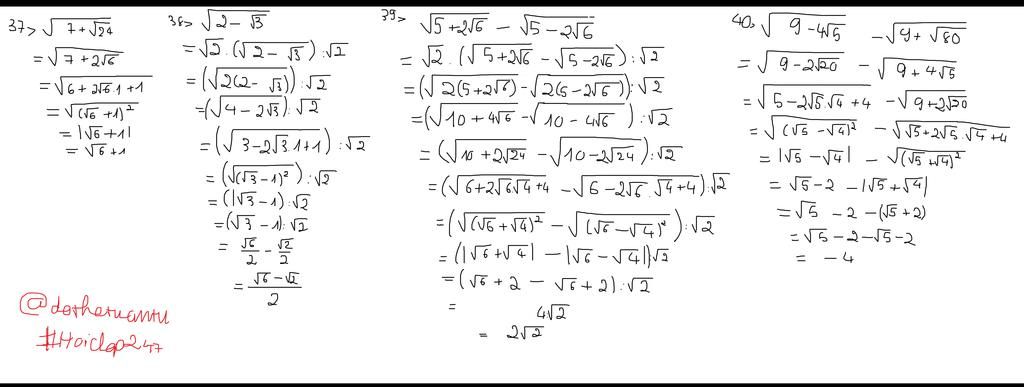 37> √(7+√24)
= √(7+2√6)
= √(6+2√6.1+1)
= √((√6+1)²)
= |√6+1|
= √6+1
38> √(2-√3)
= √2.(√(2-√3)):√2
= (√(2(2-√3))):√2
= (√(4-2√3)):√2
= (√(3-2√3.1+1)):√2
= (√((√3-1)²)):√2
= (|√3-1):√2
= (√3-1):√2
= √6/2 - √2/2
= (√6-√2)/2
39> √(5+2√6) - √(5-2√6)
= √2.(√(5+2√6) - √(5-2√6)):√2
= (√(2(5+2√6)) - √(2(5-2√6))):√2
= (√(10+4√6) - √(10-4√6)):√2
= (√(10+2√24) - √(10-2√24)):√2
= (√(6+2√6√4+4) - √(6-2√6.√4+4)):√2
= (√((√6+√4)²) - √((√6-√4)²)):√2
= (|√6+√4| - |√6-√4|)√2
= (√6+2-√6+2):√2
= 4√2
= 2√2
40> √(9-4√5) - √(9+√80)
= √(9-2√20) - √(9+4√5)
= √(5-2√5.√4+4) - √(9+2√20)
= √((√5-√4)²) - √(√5+2√5.√4+4)
= |√5-√4| - √((√5+√4)²)
= √5-2-|√5+√4|
= √5-2-(√5+2)
= √5-2-√5-2
= -4
#Hoidap247